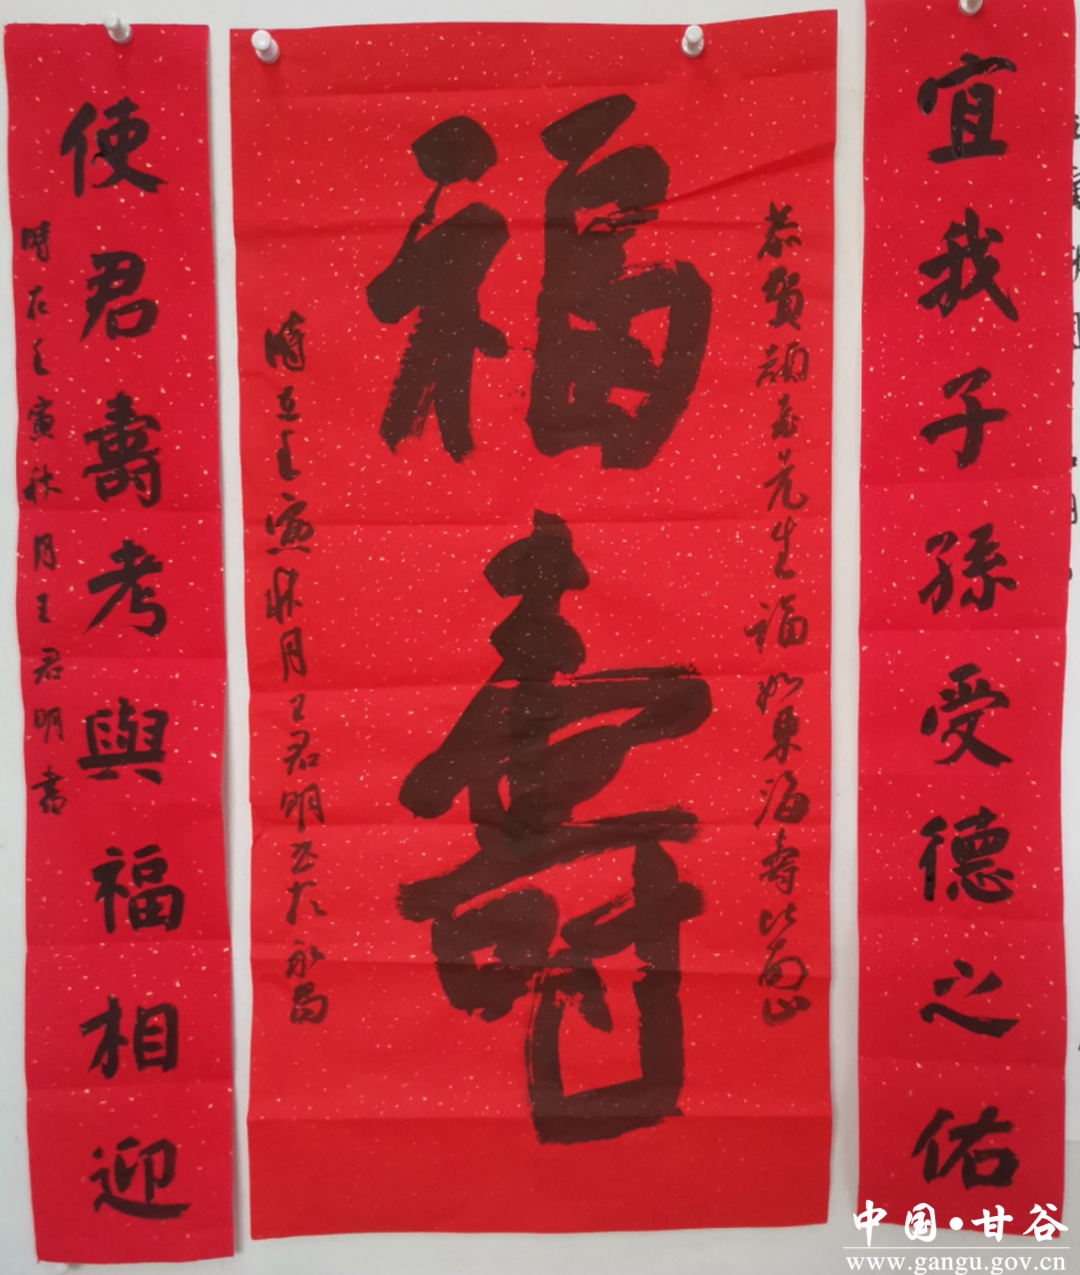 宜我子孫受德之佑
恭賀顏玉先生福如東海壽比南山
福壽
時在壬寅秋月王君明书于永昌
使君壽考與福相迎
時在壬寅秋月王君明書
中国·甘谷
www.gangu.gov.cn